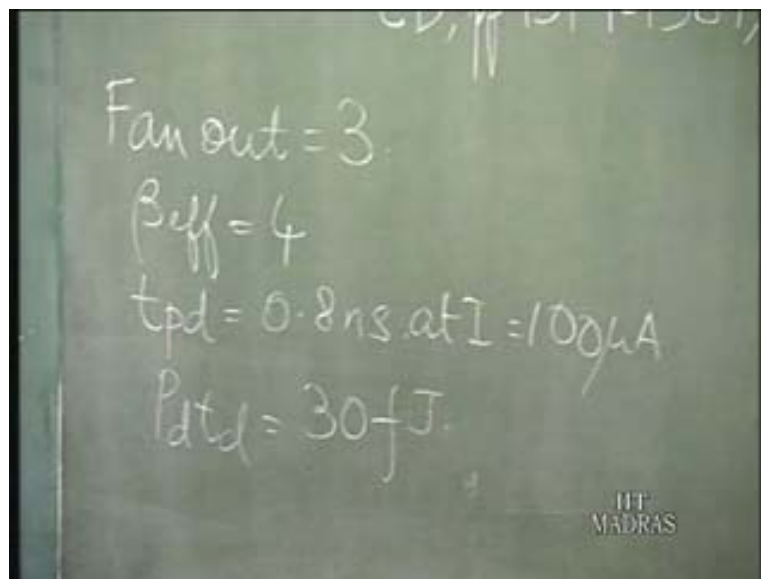 Fan out = 3.
βeff = 4
tpd = 0.8ns.at I = 100μA
Pdtd = 30fJ.
IIT
MADRAS